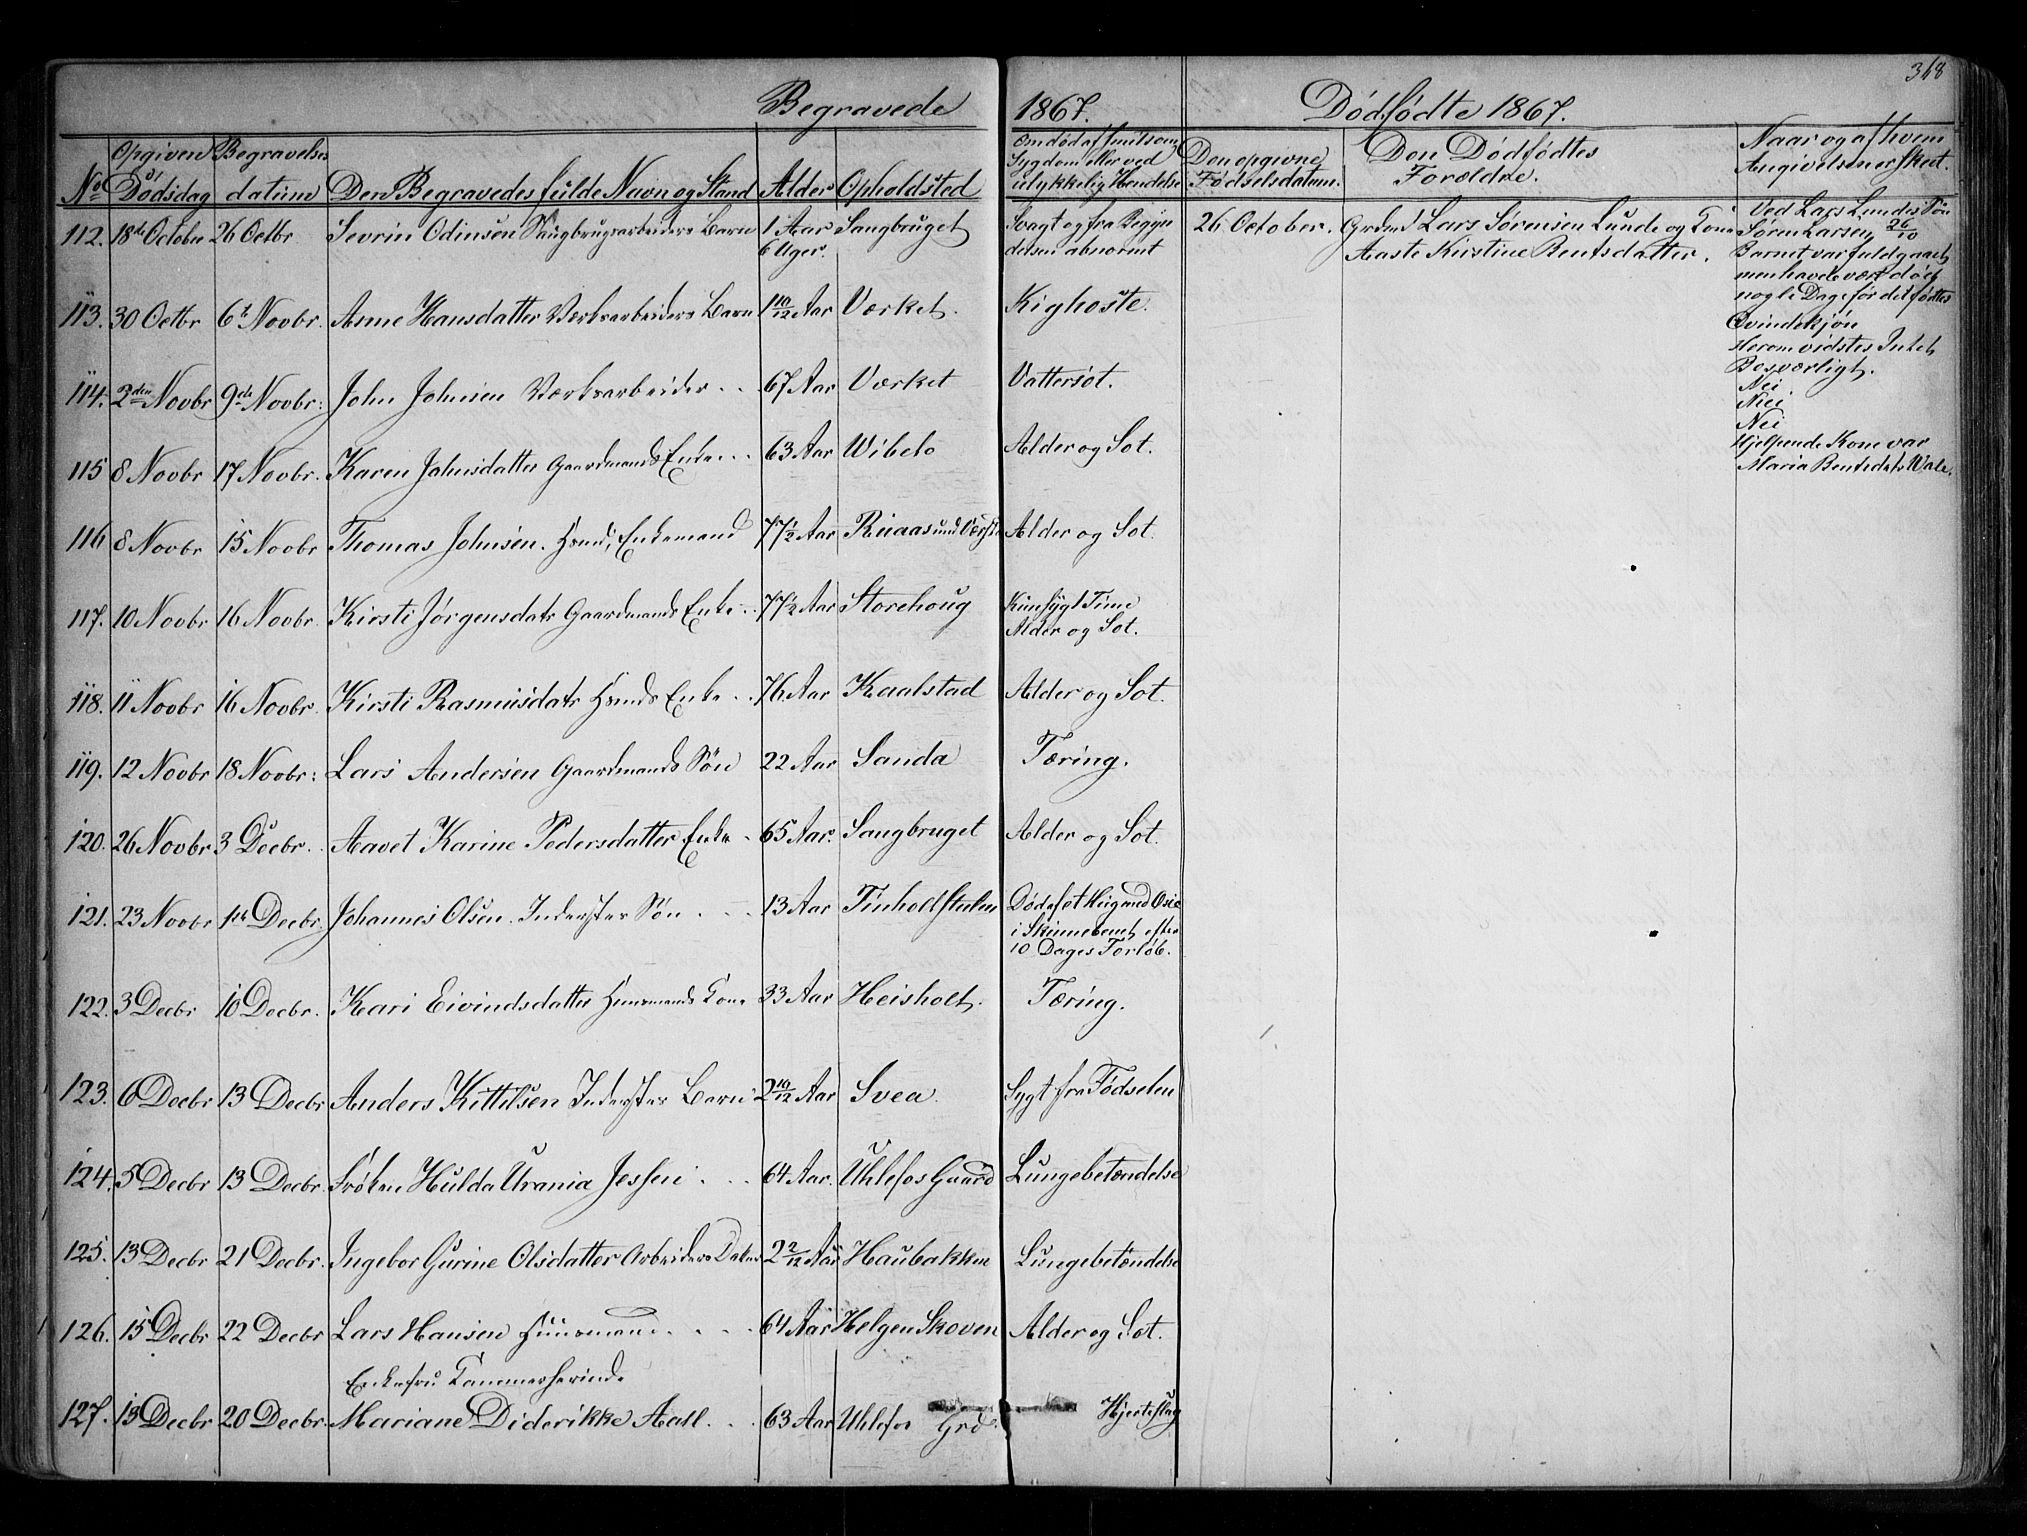 318
Begravede 1867.
Dødfødte 1867.
No
Opgiven Dødsdag
Begravelses datum
Den Begravedes fulde Navn og Stand
Alder
Opholdsted
Om død af smitsom Sygdom eller ved ulykkelig Hendelse
Den opgivne Fødselsdatum.
Den Dødfødtes Forældre.
Naar og af hvem Angivelsen er skeet.
112. 18de October 26 Octbr Sevrin Odinsen Saugbrugsarbeiders Barn 1 Aar 6 Uger. Saugbruget Svagt og fra Begyndelsen abnormt
113. 30 Octbr 6t Novbr. Anne Hansdatter Værksarbeiders Barn 1 10/12 Aar Værket. Kighoste.
114. 2den Novbr 9de Novbr: John Johnsen Værksarbeider 67 Aar Værket Vattersot.
115 8 Novbr 17 Novbr. Karen Johnsdatter Gaardmands Enke 63 Aar Wibeto Alder og Sot.
116 8 Novbr 15 Novbr Thomas Johnsen. Hsmd, Enkemand 77½ Aar Alder og Sot.
117. 10 Novbr 16 Novbr. Kirsti Jørgensdatr Gaardmands Enke 77½ Aar Storehoug Kun sygt 1 Time Alder og Sot.
118. 11 Novbr 16 Novbr. Kirsti Rasmusdatr Hsmds Enke 76 Aar Kaalstad Alder og Sot.
119. 12 Novbr 18 Novbr: Lars Andersen Gaardmands Søn 22 Aar Sanda Tæring.
120. 26 Novbr 3 Decbr. Aavet Karine Pedersdatter Enke 65 Aar. Saugbruget Alder og Sot.
121. 23 Novbr 1ste Decbr. Johannes Olsen. Indersters Søn 13 Aar Tinholtstulen i Skinnebenet efter 10 Dages Forløb.
122. 3 Decbr 10 Decbr. Kari Eivindsdatter Huusmands Kone 33 Aar Heisholt. Tæring.
123. 6 Decbr 13 Decbr Anders Kittilsen Indersters Barn 2 10/12 Aar Svea. Sygt fra Fødselen
124. 5 Decbr 13 Decbr. Frøken Hulda Urania Jessen 64 Aar. Uhlefos Gaard Lungebetændelse
125. 13 Decbr 21 Decbr. Ingebor Gurine Olsdatter Arbeiders Datter 2 2/12 Aar Haubakken Lungebetændelse
126. 15 Decbr 22 Decbr Lars Hansen Huusmand 64 Aar Helgen Skoven Alder og Sot.
Enkefru Kammerherinde
127. 13 Decbr 20 Decbr. Mariane Diderikke Aall 63 Aar Uhlefos Grd. Hjerteslag
26 October. Grdmd Lars Sørensen Lunde og Kone
Aaste Kirstine Bentsdatter.
Ved Lars Lundes Søn
Søren Larsen 26/10
Barnet var fuldgaaet
men havde vært død
nogle Dage før det fødtes
Qvindekjøn
Herom vidstes Intet
Besværligt.
Nei
Nei
Nei
Hjelpende Kone var
Maria Bentsdatr Vale.